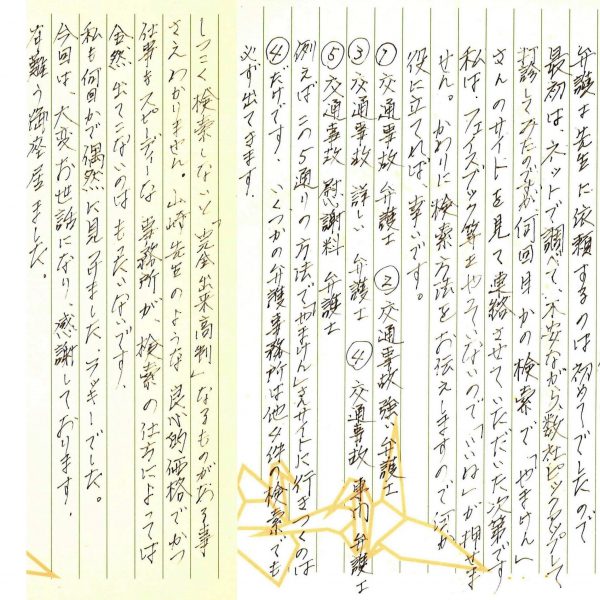 弁護士先生に依頼するのは、初めてでしたので
最初は、ネットで調べて、不安ながら、数社ピックアップして
打診してみたのですが何回目かの検索で「やまけん」
さんのサイトを見て連絡させていただいた次第です
私は、フェイスブック等もやっていないので「いいね」が押せま
せん。かわりに検索方法をお伝えしますので何か
役に立てれば、幸いです。
① 交通事故 弁護士 ② 交通事故 強い 弁護士
③ 交通事故 詳しい 弁護士 ④ 交通事故 専門 弁護士
⑤ 交通事故 慰謝料 弁護士
例えば この5通りの方法で「やまけん」さんサイトに行きつくのは
④だけです。いくつかの弁護事務所は他4件の検索でも
必ず出てきます。
しつこく検索しないと「完全出来高制」なるものがある事
さえわかりません。山﨑先生のような良心的価格でかつ
仕事もスピーディーな事務所が、検索の仕方によっては
全然出てこないのはもったいないです。
私も何回かで偶然に見つけました、ラッキーでした。
今回は、大変お世話になり、感謝しております。
有難う御座居ました。